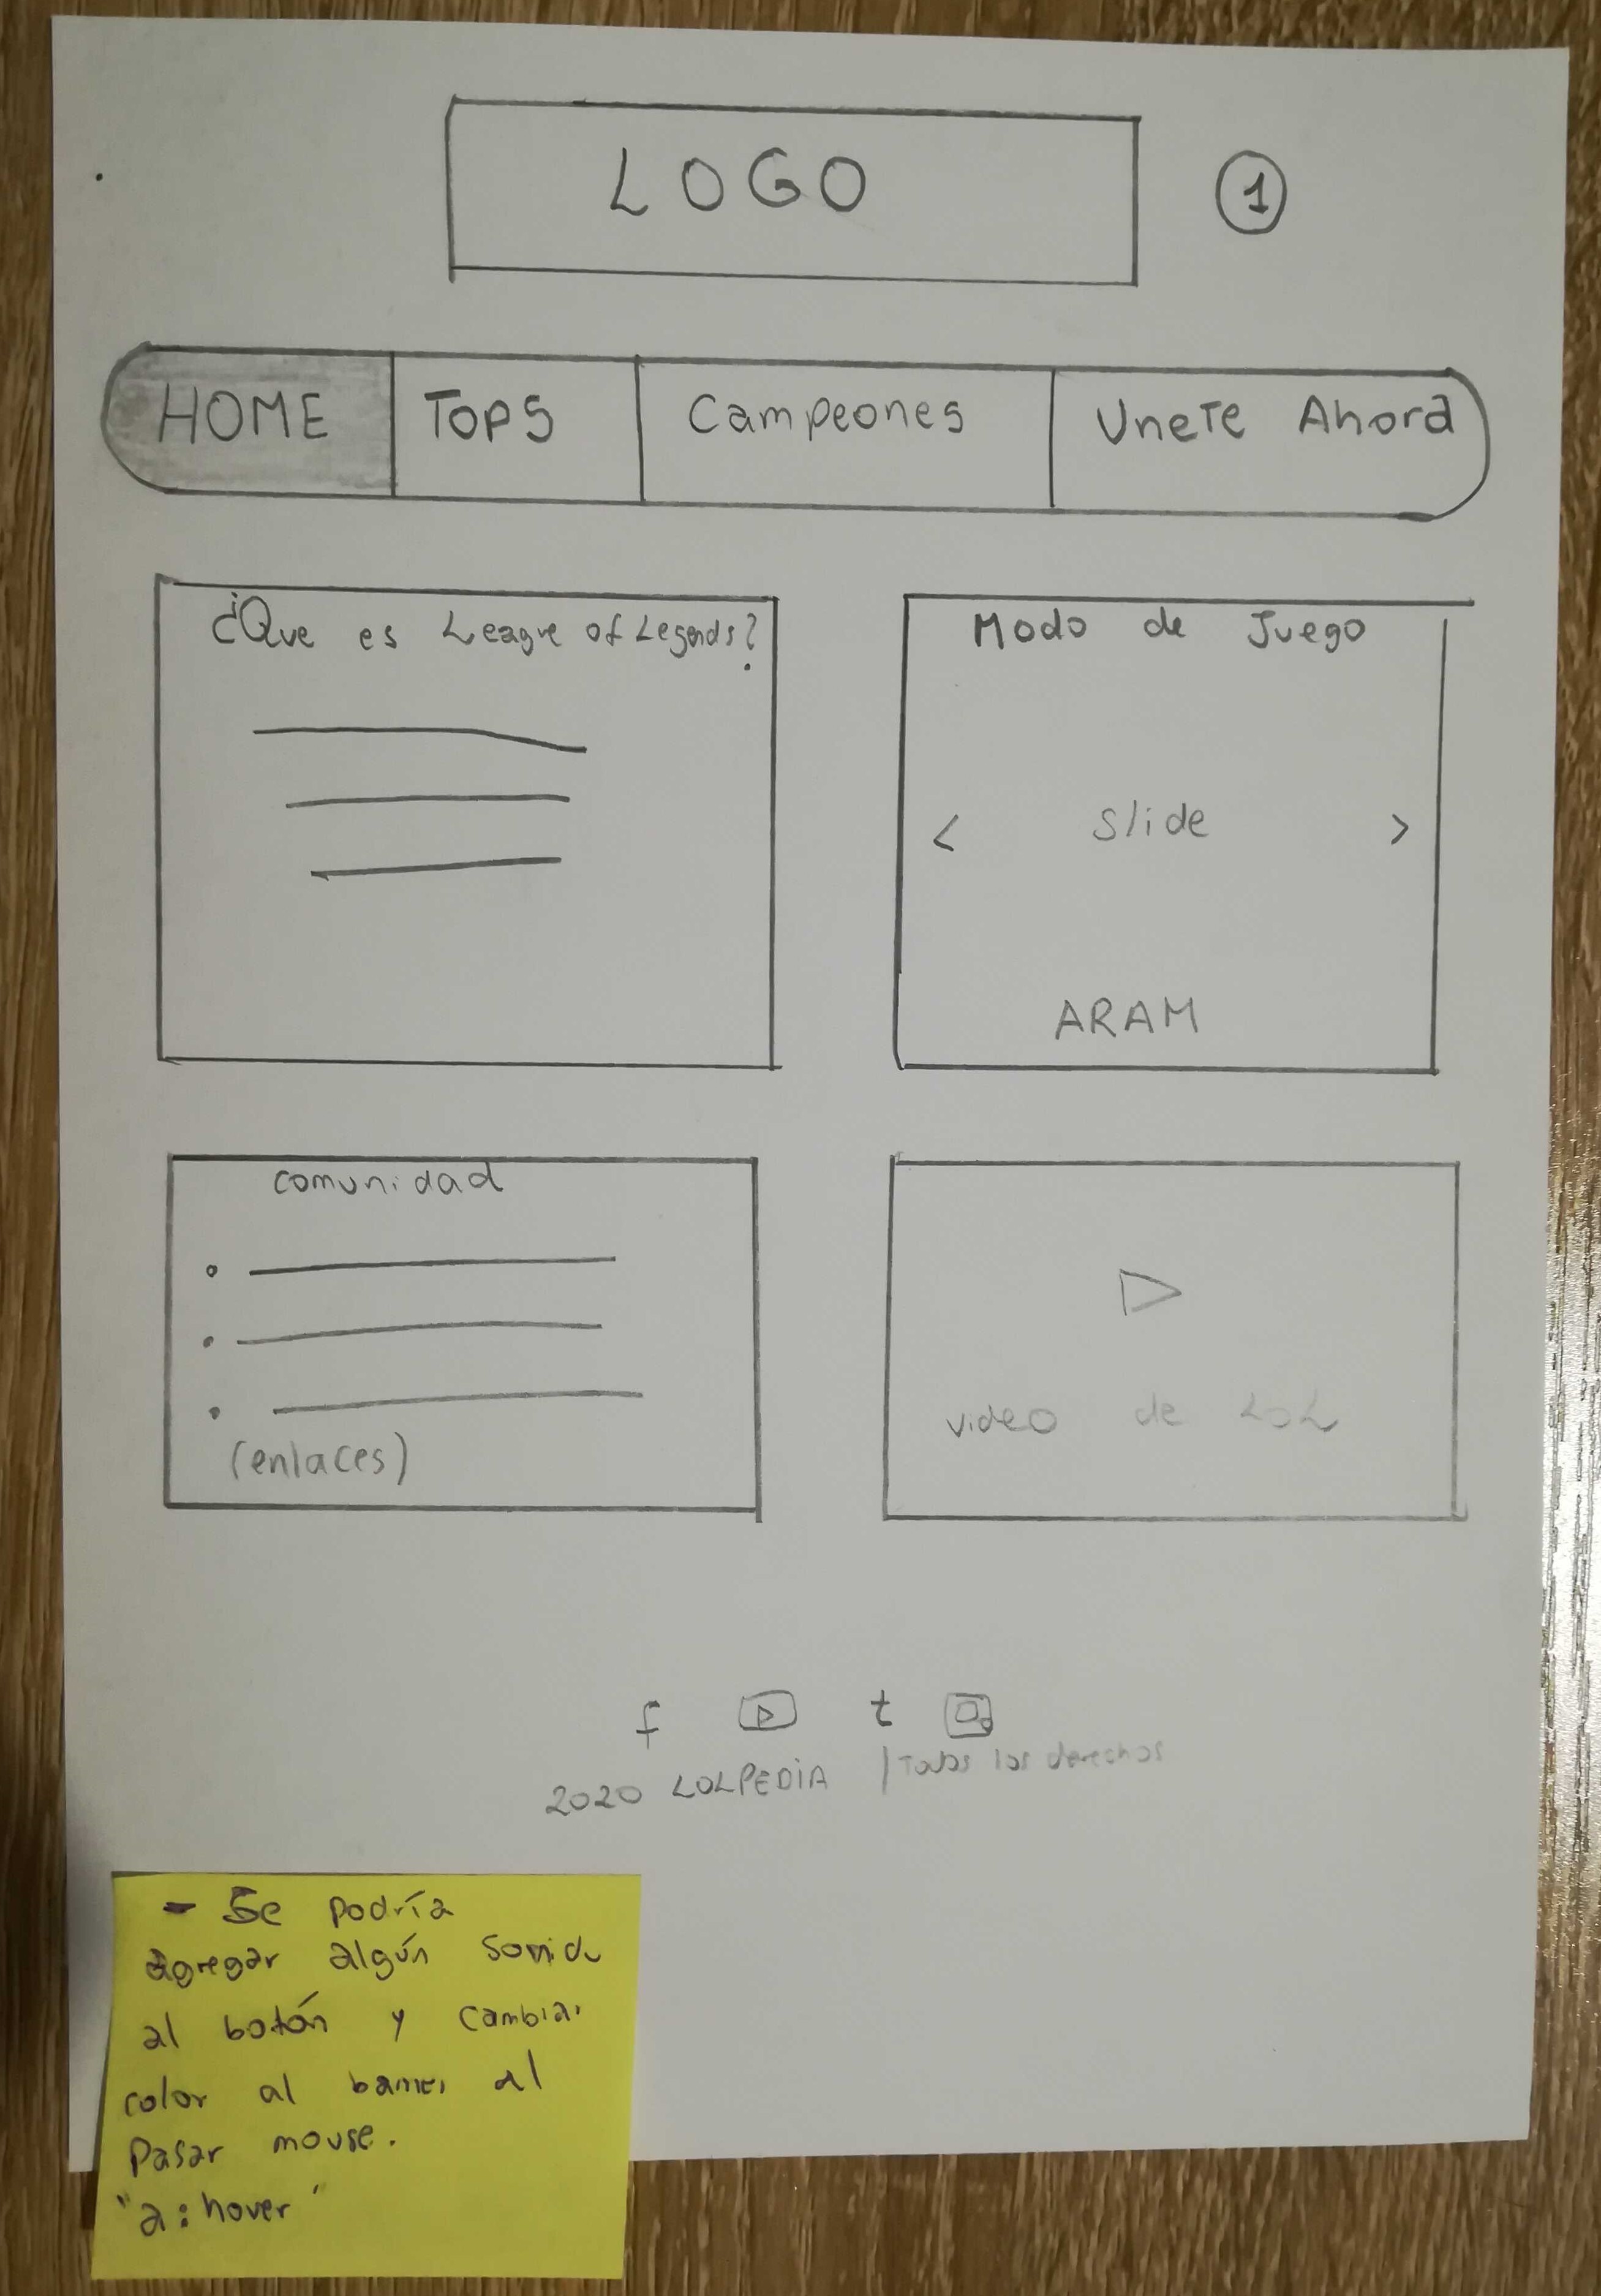 LOGO
1
HOME TOPS Campeones Unete Ahora
¿Que es League of Legends?
Modo de Juego
< slide >
ARAM
comunidad
(enlaces)
video de LOL
f t
2020 LOLPEDIA | Todos los derechos
- Se podría
agregar algún sonido
al botón y cambiar
color al banner al
Pasar mouse.
"a:hover"